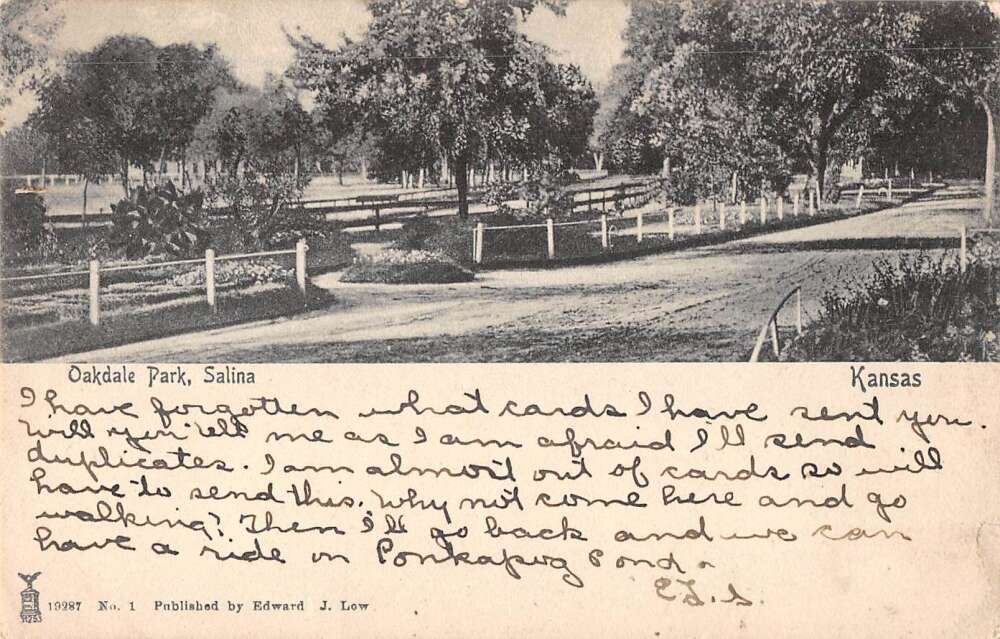 Oakdale Park, Salina Kansas
I have forgotten what cards I have sent you.
Will you tell me as I am afraid I'll send
duplicates. I am almost out of cards so will
have to send this. Why not come here and go
walking? Then I'll go back and we can
have a ride on Ponkapog Pond.
19287 No. 1 Published by Edward J. Low